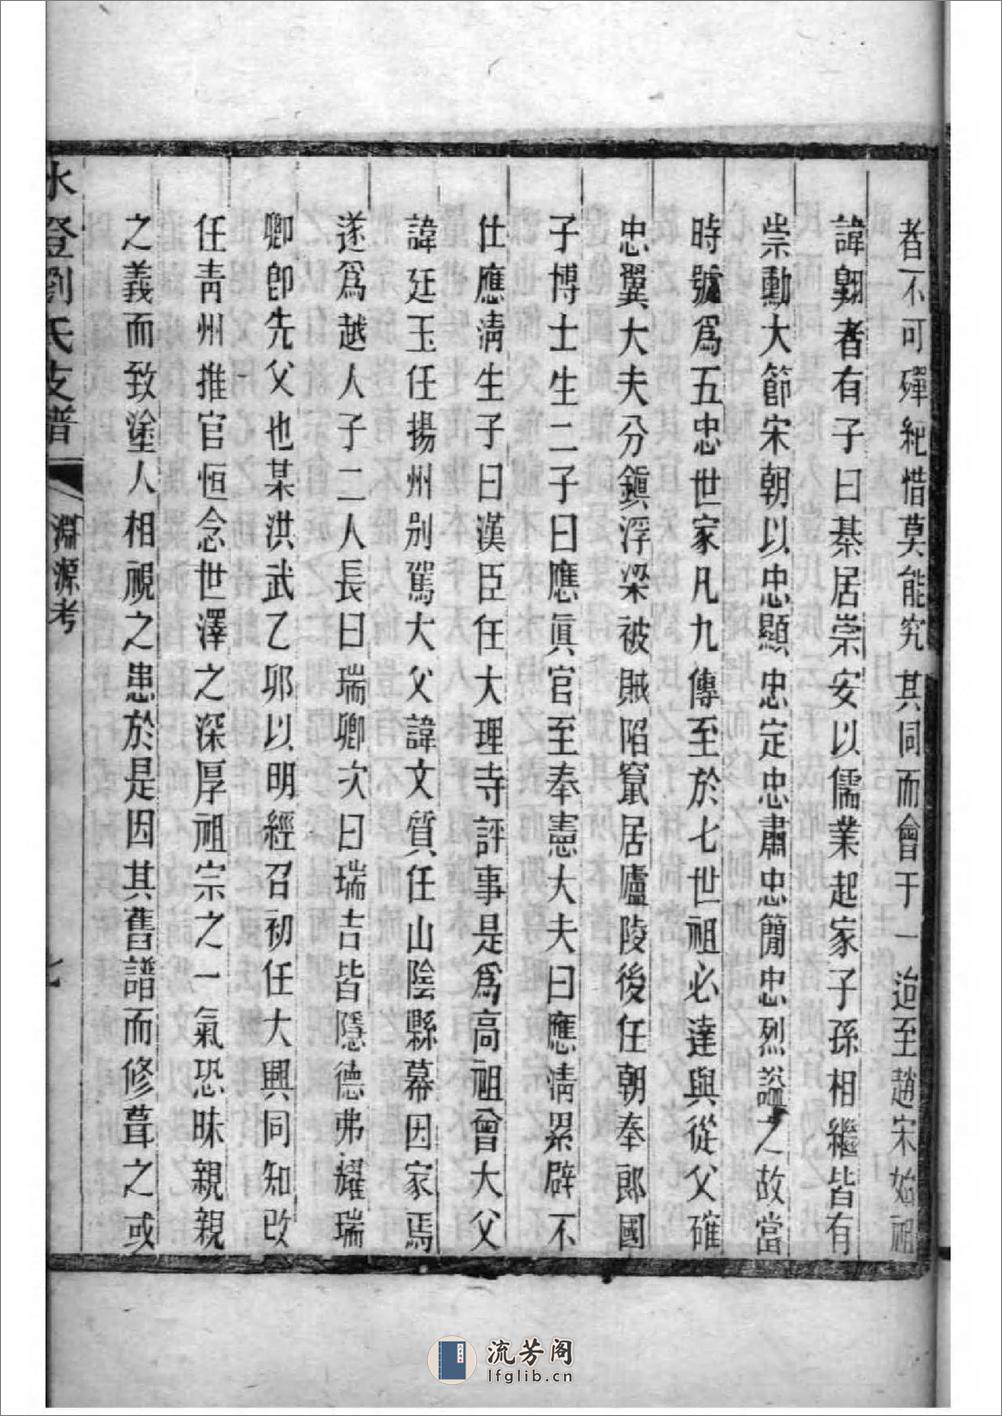 者不可殫紀惜莫能究其同而會于一迨至趙宋始祖
諱翺者有子曰綦居崇安以儒業起家子孫相繼皆有
崇勳大節宋朝以忠顯忠定忠肅忠簡忠烈諡之故當
時號爲五忠世家凡九傳至於七世祖必達與從父確
忠翼大夫分鎭浮梁被賊陷竄居廬陵後任朝奉郎國
子博士生二子曰應眞官至奉憲大夫曰應淸累辟不
仕應淸生子曰漢臣任大理寺評事是爲高祖曾大父
諱廷玉任揚州別駕大父諱文質任山陰縣幕因家焉
遂爲越人子二人長曰瑞卿次曰瑞吉皆隱德弗耀瑞
卿卽先父也某洪武乙卯以明經召初任大興同知改
任靑州推官恒念世澤之深厚祖宗之一氣恐昧親親
之義而致塗人相視之患於是因其舊譜而修葺之或
水澄劉氏支譜 淵源考 七
流芳阁
lfglib.cn